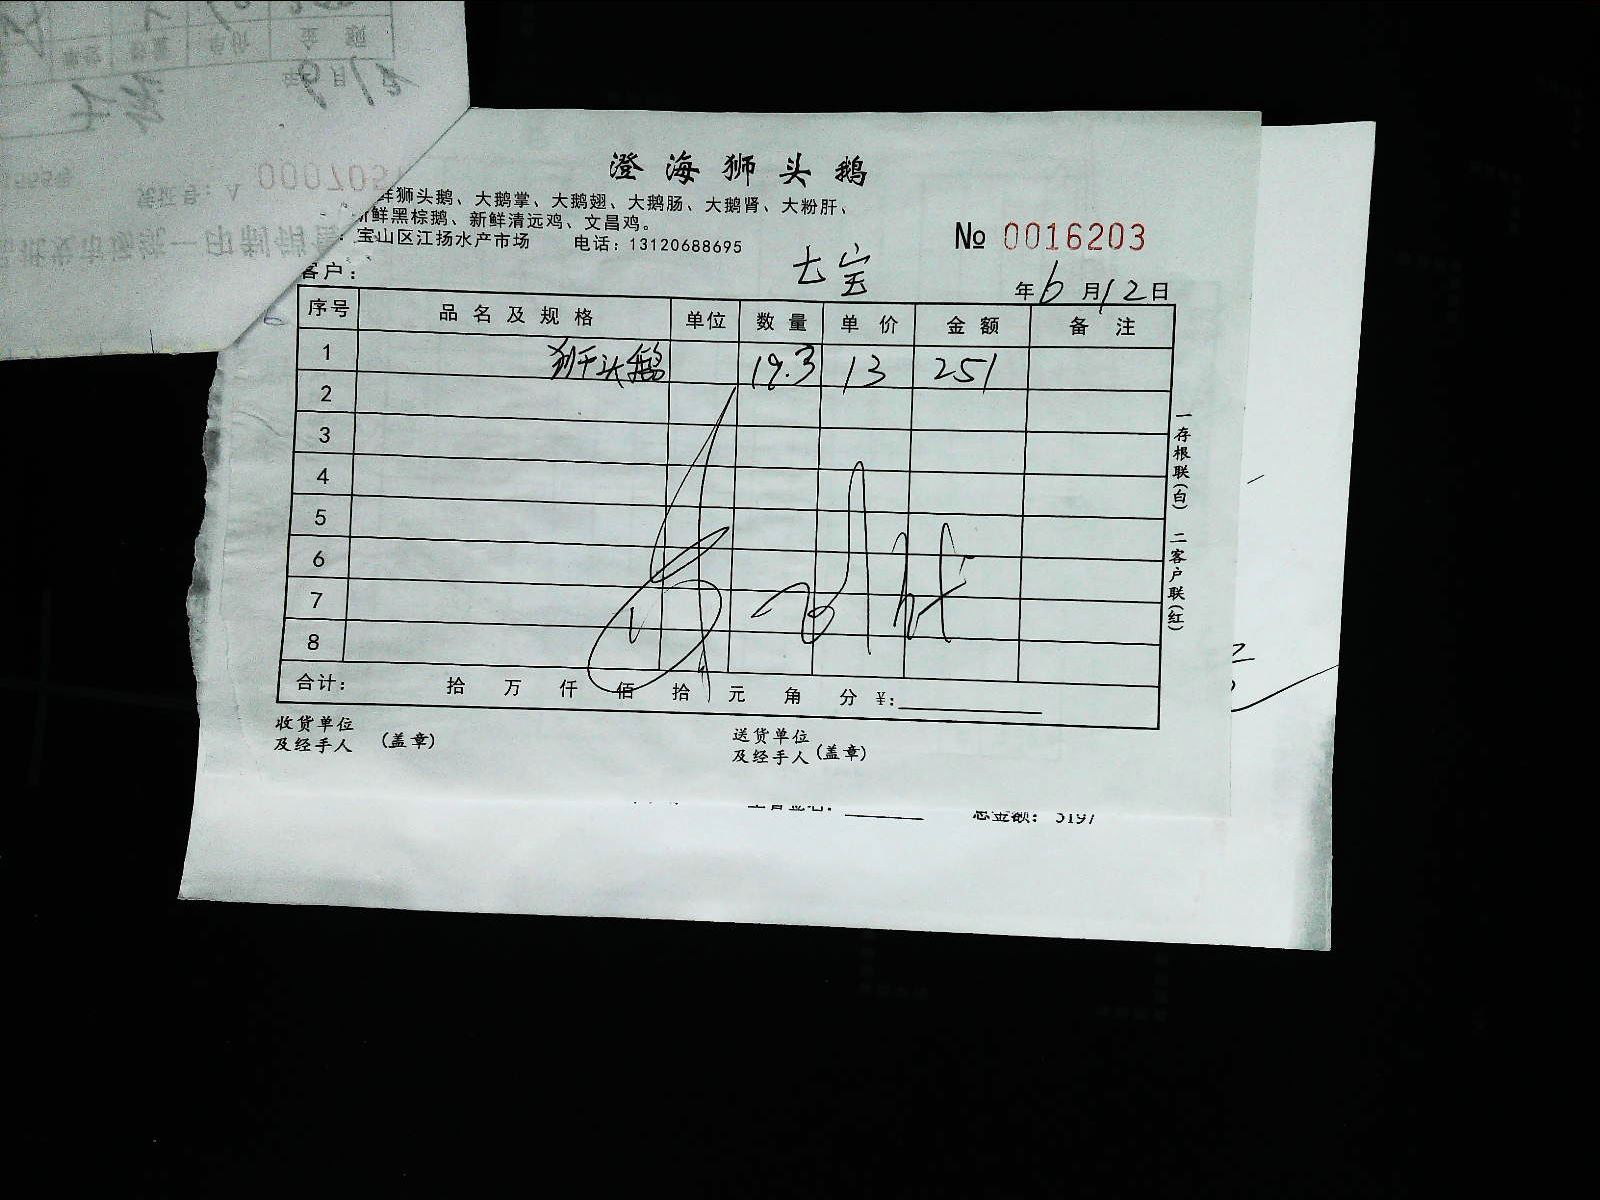 澄海狮头鹅
鲜狮头鹅、大鹅掌、大鹅翅、大鹅肠、大鹅肾、大粉肝、
新鲜黑棕鹅、新鲜清远鸡、文昌鸡。
宝山区江扬水产市场 电话：13120688695
№ 0016203
客户： 七宝 年6月12日
序号 品名及规格 单位 数量 单价 金额 备注
1 狮头鹅 19.3 13 251
2
3
4
5
6
7
8
合计： 拾 万 仟 佰 拾 元 角 分 ¥:
收货单位
及经手人 (盖章)
送货单位
及经手人 (盖章)
一存根联(白) 二客户联(红)
总金额：